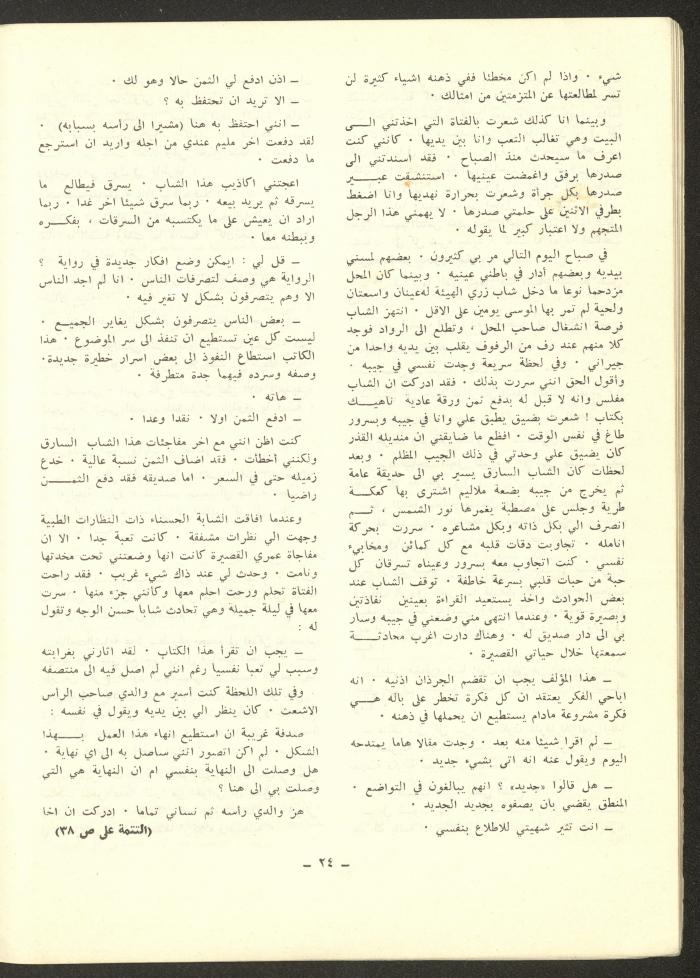 شيء ٠ واذا لم اكن مخطئا ففي ذهنه اشياء كثيرة لن
تسر لمطالعتها عن المتزمتين من امثالك ٠
وبينما انا كذلك شعرت بالفتاة التي اخذتني الى
البيت وهي تغالب التعب وانا بين يديها ٠ كانني كنت
اعرف ما سيحدث منذ الصباح ٠ فقد اسندتني الى
صدرها برفق واغمضت عينيها ٠ استنشقت عبير
صدرها بكل جرأة وشعرت بحرارة نهديها وانا اضغط
بطرفي الاثنين على حلمتي صدرها ٠ لا يهمني هذا الرجل
المتجهم ولا اعتبار كبير لما يقوله ٠
في صباح اليوم التالي مر بي كثيرون ٠ بعضهم لمسني
بيديه وبعضهم أدار في باطني عينيه ٠ وبينما كان المحل
مزدحما نوعا ما دخل شاب زري الهيئة له عينان واسعتان
ولحية لم تمر بها الموسى يومين على الاقل ٠ انتهز الشاب
فرصة انشغال صاحب المحل ، وتطلع الى الرواد فوجد
كلا منهم عند رف من الرفوف يقلب بين يديه واحدا من
جيراني ٠ وفي لحظة سريعة وجدت نفسي في جيبه ٠
وأقول الحق انني سررت بذلك ٠ فقد ادركت ان الشاب
مفلس وانه لا قبل له بدفع ثمن ورقة عادية ناهيك
بكتاب ! شعرت بضيق يطبق علي وانا في جيبه وبسرور
طاغ في نفس الوقت ٠ افظع ما ضايقني ان منديله القذر
كان يضيق علي وحدتي في ذلك الجيب المظلم ٠ وبعد
لحظات كان الشاب السارق يسير بي الى حديقة عامة
ثم يخرج من جيبه بضعة ملاليم اشترى بها كعكة
طرية وجلس على مصطبة يغمرها نور الشمس ، ثم
انصرف الي بكل ذاته وبكل مشاعره ٠ سررت بحركة
انامله ٠ تجاوبت دقات قلبه مع كل كمائن ومخابيء
نفسي ٠ كنت اتجاوب معه بسرور وعيناه تسرقان كل
حبة من حبات قلبي بسرعة خاطفة ٠ توقف الشاب عند
بعض الحوادث واخذ يستعيد القراءة بعينين نفاذتين
وبصيرة قوية ٠ وعندما انتهى مني وضعني في جيبه وسار
بي الى دار صديق له ٠ وهناك دارت اغرب محادثة
سمعتها خلال حياتي القصيرة ٠
ــ هذا المؤلف يجب ان تقضم الجرذان اذنيه ٠ انه
اباحي الفكر يعتقد ان كل فكرة تخطر على باله هي
فكرة مشروعة مادام يستطيع ان يحملها في ذهنه ٠
ــ لم اقرا شيئا منه بعد ٠ وجدت مقالا هاما يمتدحه
اليوم ويقول عنه انه اتى بشيء جديد ٠
ــ هل قالوا «جديد» ؟ انهم يبالغون في التواضع ٠
المنطق يقضي بان يصفوه بجديد الجديد ٠
ــ انت تثير شهيتي للاطلاع بنفسي ٠
ــ اذن ادفع لي الثمن حالا وهو لك ٠
ــ الا تريد ان تحتفظ به ؟
ــ انني احتفظ به هنا (مشيرا الى رأسه بسبابه) ٠
لقد دفعت اخر مليم عندي من اجله واريد ان استرجع
ما دفعت ٠
اعجتني اكاذيب هذا الشاب ٠ يسرق فيطالع ما
يسرقه ثم يريد بيعه ٠ ربما سرق شيئا اخر غدا ٠ ربما
اراد ان يعيش على ما يكتسبه من السرقات ، بفكره
وببطنه معا ٠
ــ قل لي : ايمكن وضع افكار جديدة في رواية ؟
الرواية هي وصف لتصرفات الناس ٠ انا لم اجد الناس
الا وهم يتصرفون بشكل لا تغير فيه ٠
ــ بعض الناس يتصرفون بشكل يغاير الجميع ٠
ليست كل عين تستطيع ان تنفذ الى سر الموضوع ٠ هذا
الكاتب استطاع النفوذ الى بعض اسرار خطيرة جديدة٠
وصفه وسرده فيهما جدة متطرفة ٠
ــ هاته ٠
ــ ادفع الثمن اولا ٠ نقدا وعدا ٠
كنت اظن انني مع اخر مفاجئات هذا الشاب السارق
ولكنني أخطأت ٠ فقد اضاف الثمن نسبة عالية ٠ خدع
زميله حتى في السعر ٠ اما صديقه فقد دفع الثمن
راضيا ٠
وعندما افاقت الشابة الحسناء ذات النظارات الطبية
وجهت الي نظرات مشفقة ٠ كانت تعبة جدا ٠ الا ان
مفاجاة عمري القصيرة كانت انها وضعتني تحت مخدتها
ونامت ٠ وحدث لي عند ذاك شيء غريب ٠ فقد راحت
الفتاة تحلم ورحت احلم معها وكأنني جزء منها ٠ سرت
معها في ليلة جميلة وهي تحادث شابا حسن الوجه وتقول
له :
ــ يجب ان تقرأ هذا الكتاب ٠ لقد اثارني بغرابته
وسبب لي تعبا نفسيا رغم انني لم اصل فيه الى منتصفه
وفي تلك اللحظة كنت أسير مع والدي صاحب الرأس
الاشعث ٠ كان ينظر الي بين يديه ويقول في نفسه :
صدفة غريبة ان استطيع انهاء هذا العمل بهذا
الشكل ٠ لم اكن اتصور انني ساصل به الى اي نهاية ٠
هل وصلت الى النهاية بنفسي ام ان النهاية هي التي
وصلت بي الى هنا ؟
هز والدي رأسه ثم نساني تماما ٠ ادركت ان اخا
(التتمة على ص ٣٨)
ــ ٢٤ ــ